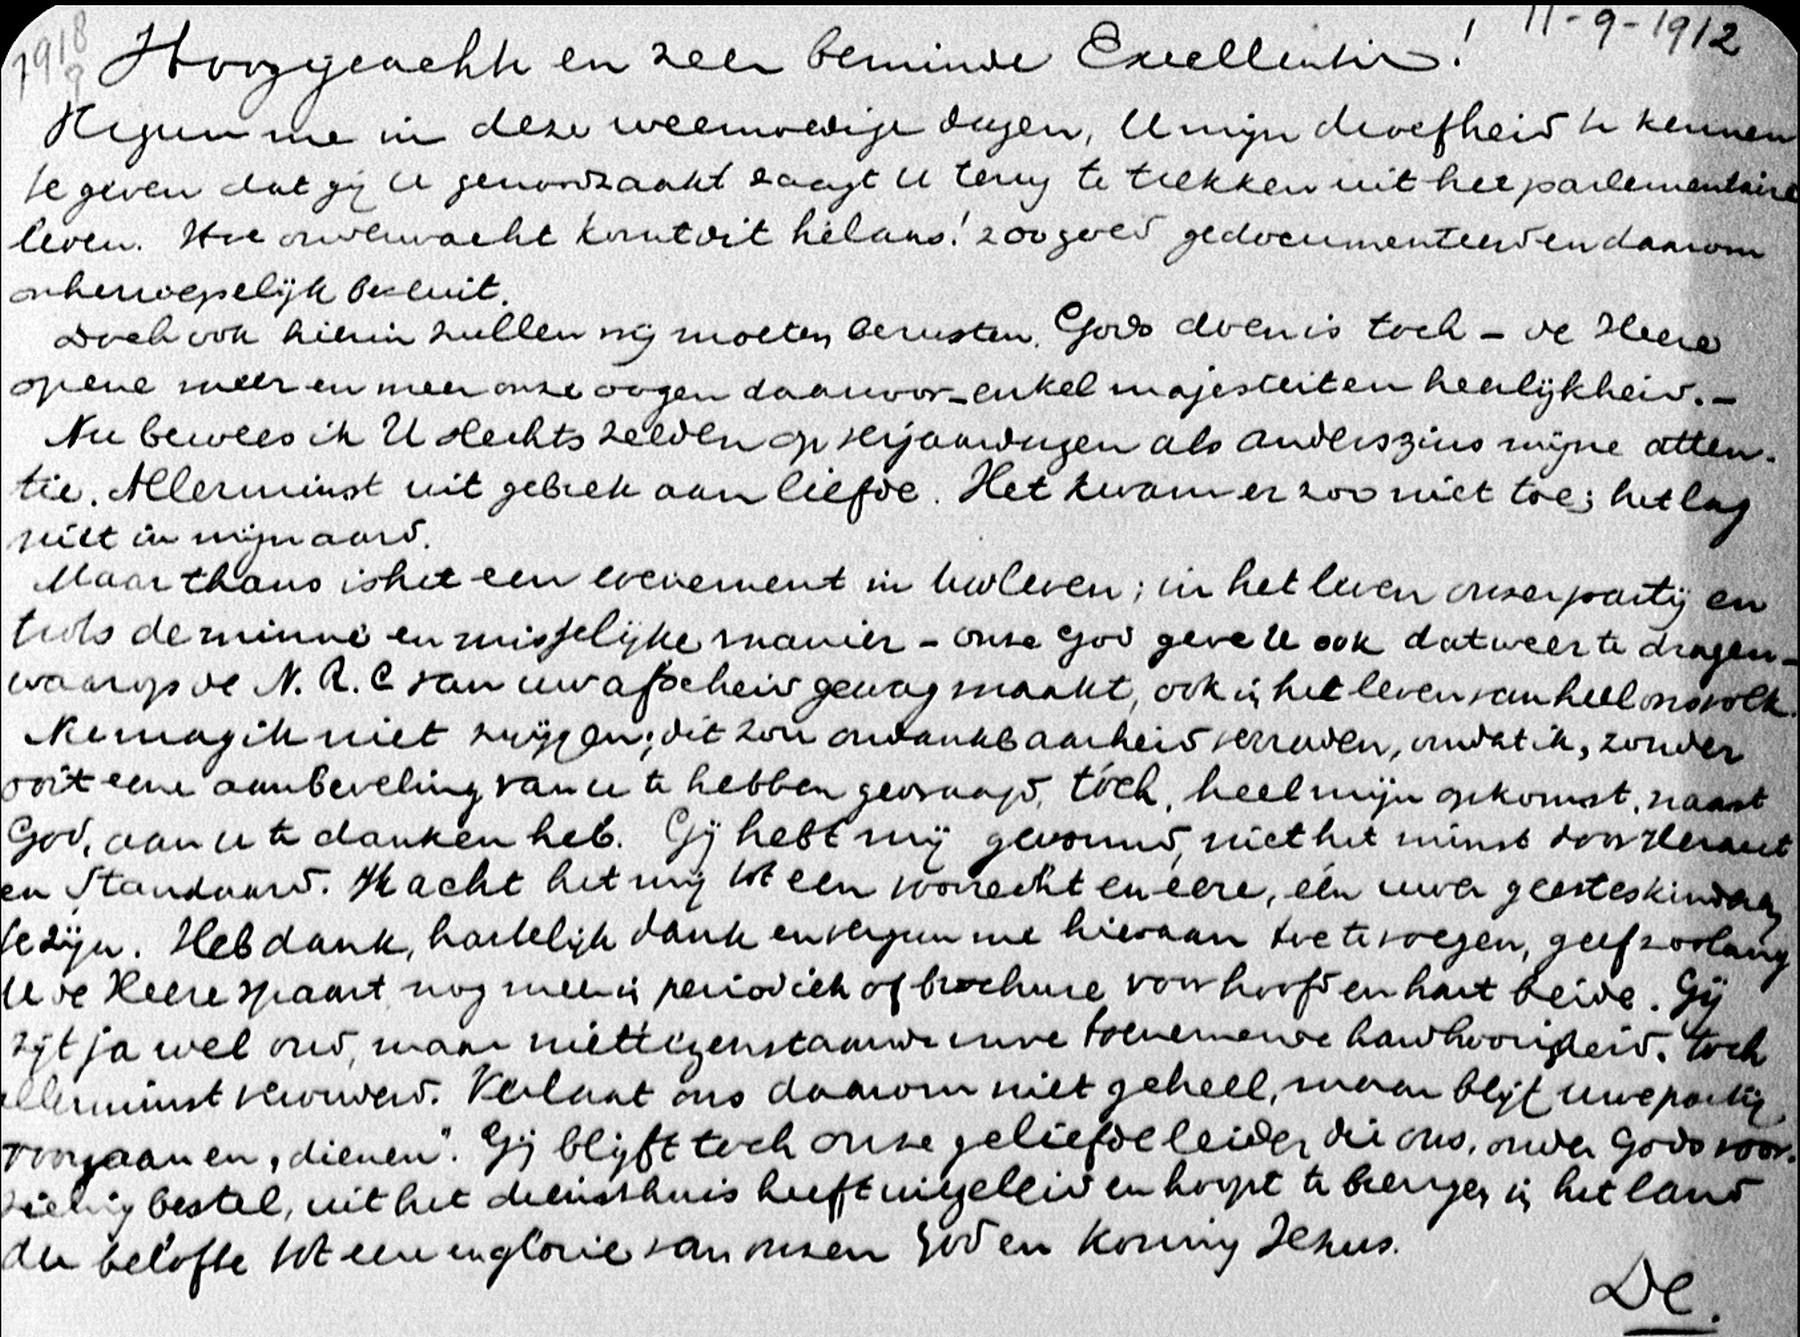 7918
9
11-9-1912
Hooggeachte en zeer beminde Excellentie!
Vergun me in deze weemoedige dagen, U mijn droefheid te kennen
te geven dat gij U genoodzaakt zaagt U terug te trekken uit het parlementaire
leven. Hoe onverwacht komt dit helaas! zoo goed gedocumenteerd en daarom
onherroepelijk besluit.
Doch ook hierin zullen wij moeten berusten. Gods doen is toch – de Heere
opene meer en meer onze oogen daarvoor – enkel majesteit en heerlijkheid. –
Nu bewees ik U slechts zelden op verjaardagen als anderszins mijne atten-
tie. Allerminst uit gebrek aan liefde. Het kwam er zoo niet toe; het lag
niet in mijn aard.
Maar thans is het een evenement in Uw leven; in het leven onzer partij en
trots de minne en misselijke manier – onze God geve U ook dat weer te dragen –
waarop de N.R.C van uw afscheid gewag maakt, ook in het leven van heel ons volk.
Nu mag ik niet zwijgen; dit zou ondankbaarheid verraden, omdat ik, zonder
ooit eene aanbeveling van U te hebben gevraagd, tóch, heel mijn opkomst, naast
God, aan U te danken heb. Gij hebt mij gevormd, niet het minst door Heraut
en Standaard. Ik acht het mij tot een voorrecht en eere, één uwer geesteskinderen
te zijn. Heb dank, hartelijk dank en vergun me hieraan toe te voegen, geef zoolang
U de Heere spaart nog meer in periodiek of brochure voor hoofd en hart beide. Gij
zijt ja wel oud, maar niettegenstaande uwe toenemende hardhoorigheid, toch
allerminst verouderd. Verlaat ons daarom niet geheel, maar blijf uwe partij
voorgaan en „dienen". Gij blijft toch onze geliefde leider die ons, onder Gods voor-
zienig bestel, uit het diensthuis heeft uitgeleid en hoopt te brengen in het land
der belofte tot eere en glorie van onzen God en Koning Jezus.
DC.